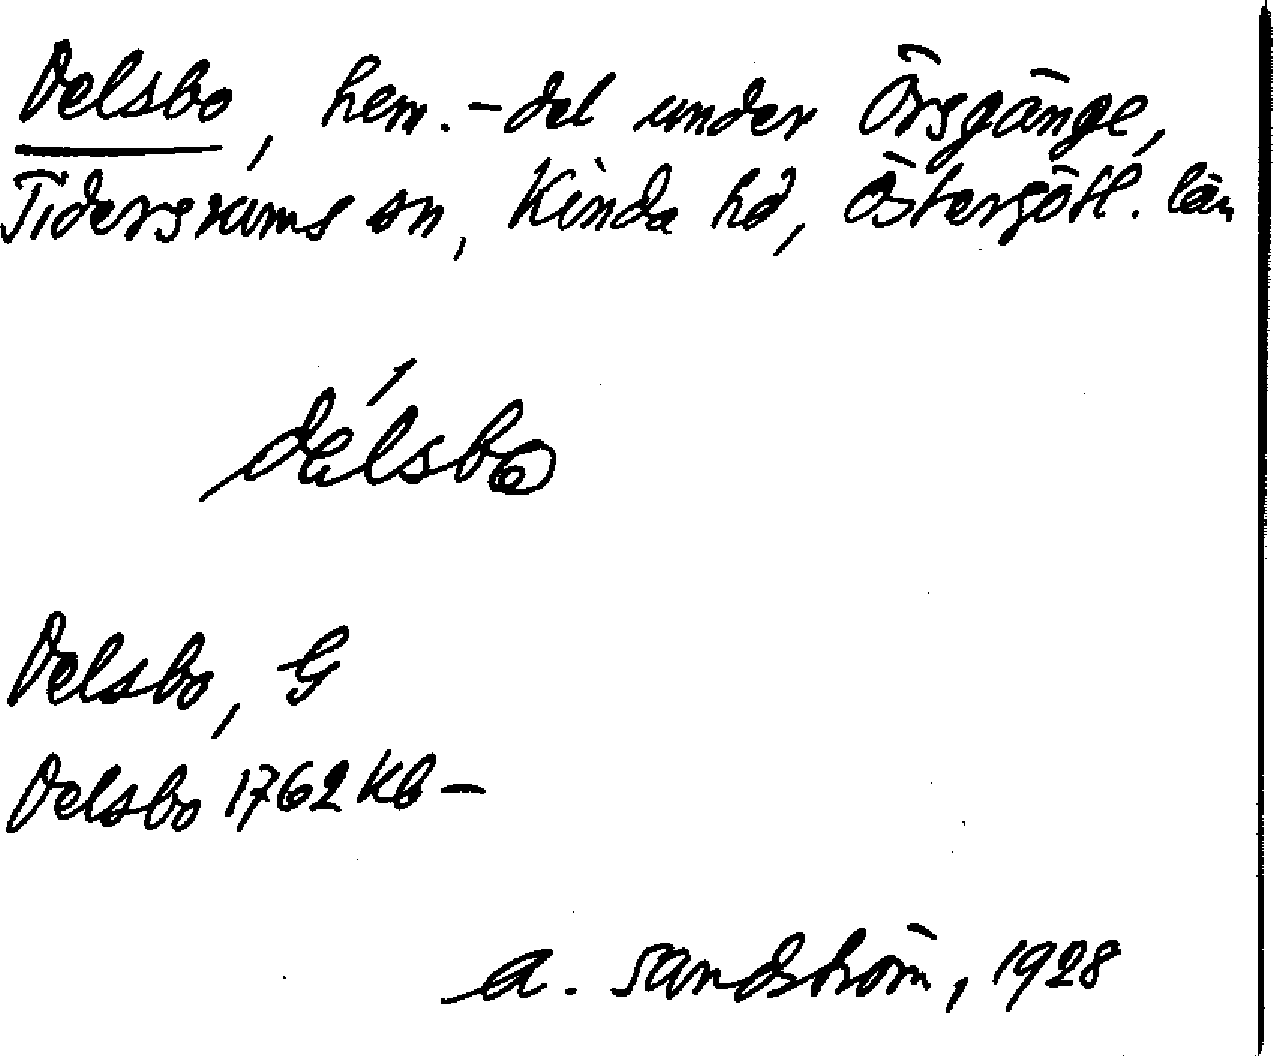 Delsbo, hem.-del under Örsgänge,
Tidersrums sn, Kinda hd, Östergötl. län
délsbo
Delsbo, G
Delsbo 1762 Kb –
A. Sandström, 1928